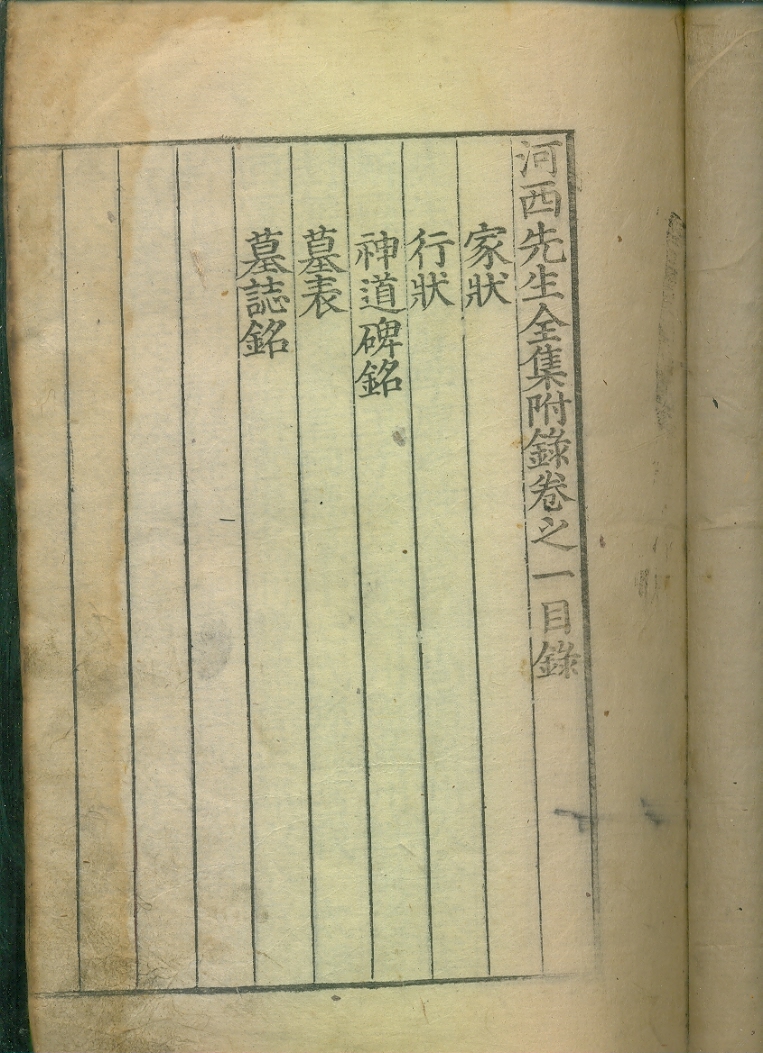 河西先生全集附錄卷之一目錄
家狀
行狀
神道碑銘
墓表
墓誌銘